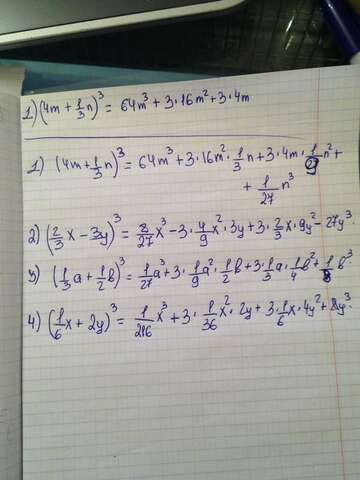 1) (4m + 1/3 n)³ = 64m³ + 3·16m² + 3·4m
1) (4m + 1/3 n)³ = 64m³ + 3·16m² · 1/3 n + 3·4m · 1/9 n² +
+ 1/27 n³
2) (2/3 x − 3y)³ = 8/27 x³ − 3 · 4/9 x² · 3y + 3 · 2/3 x · 9y² − 27y³.
3) (1/3 a + 1/2 b)³ = 1/27 a³ + 3 · 1/9 a² · 1/2 b + 3 · 1/3 a · 1/4 b² + 1/8 b³.
4) (1/6 x + 2y)³ = 1/216 x³ + 3 · 1/36 x² · 2y + 3 · 1/6 x · 4y² + 8y³.